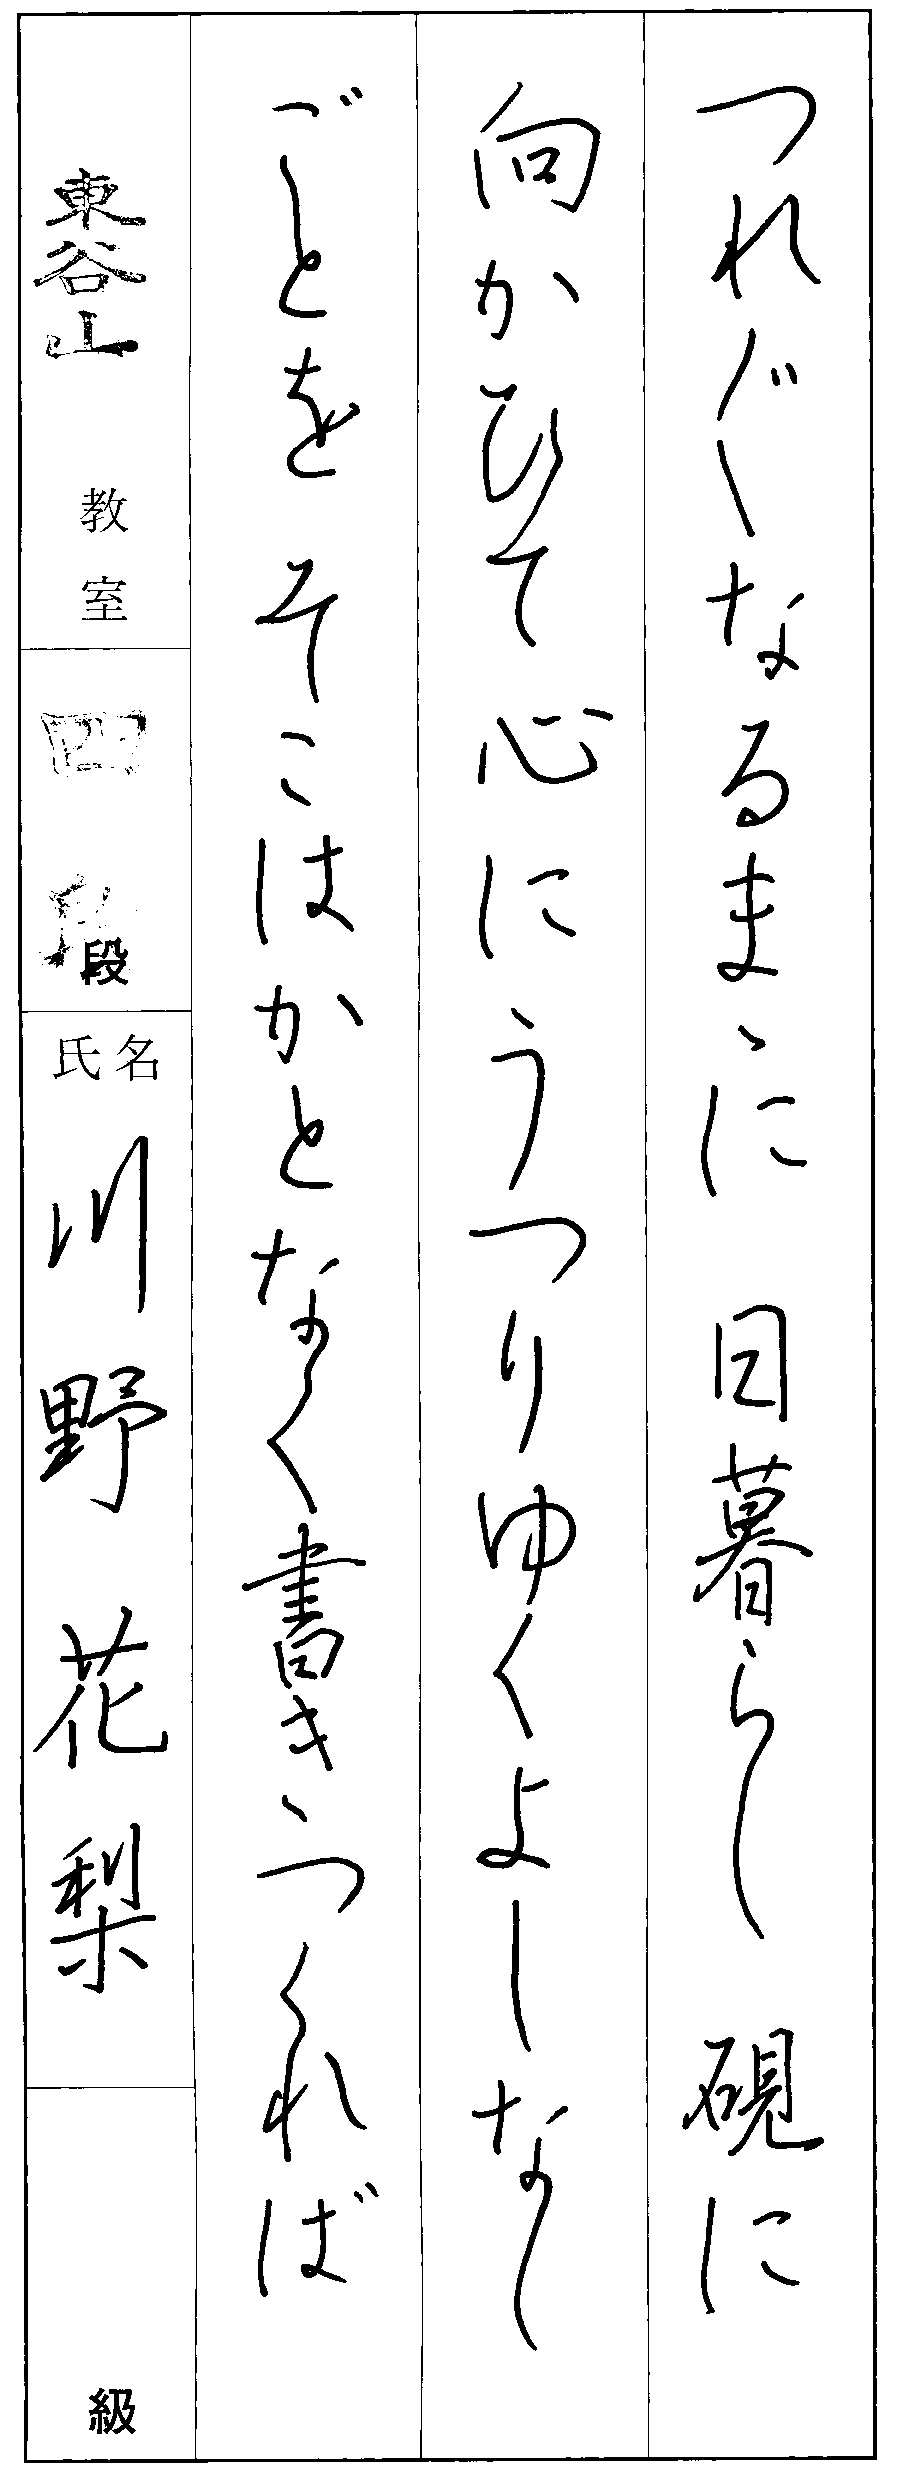 つれ〴〵なるまゝに 日暮らし 硯に
向かひて 心にうつりゆくよしなし
ごとを そこはかとなく書きつくれば
東谷山 教室
四 段
氏名 川野 花梨
級